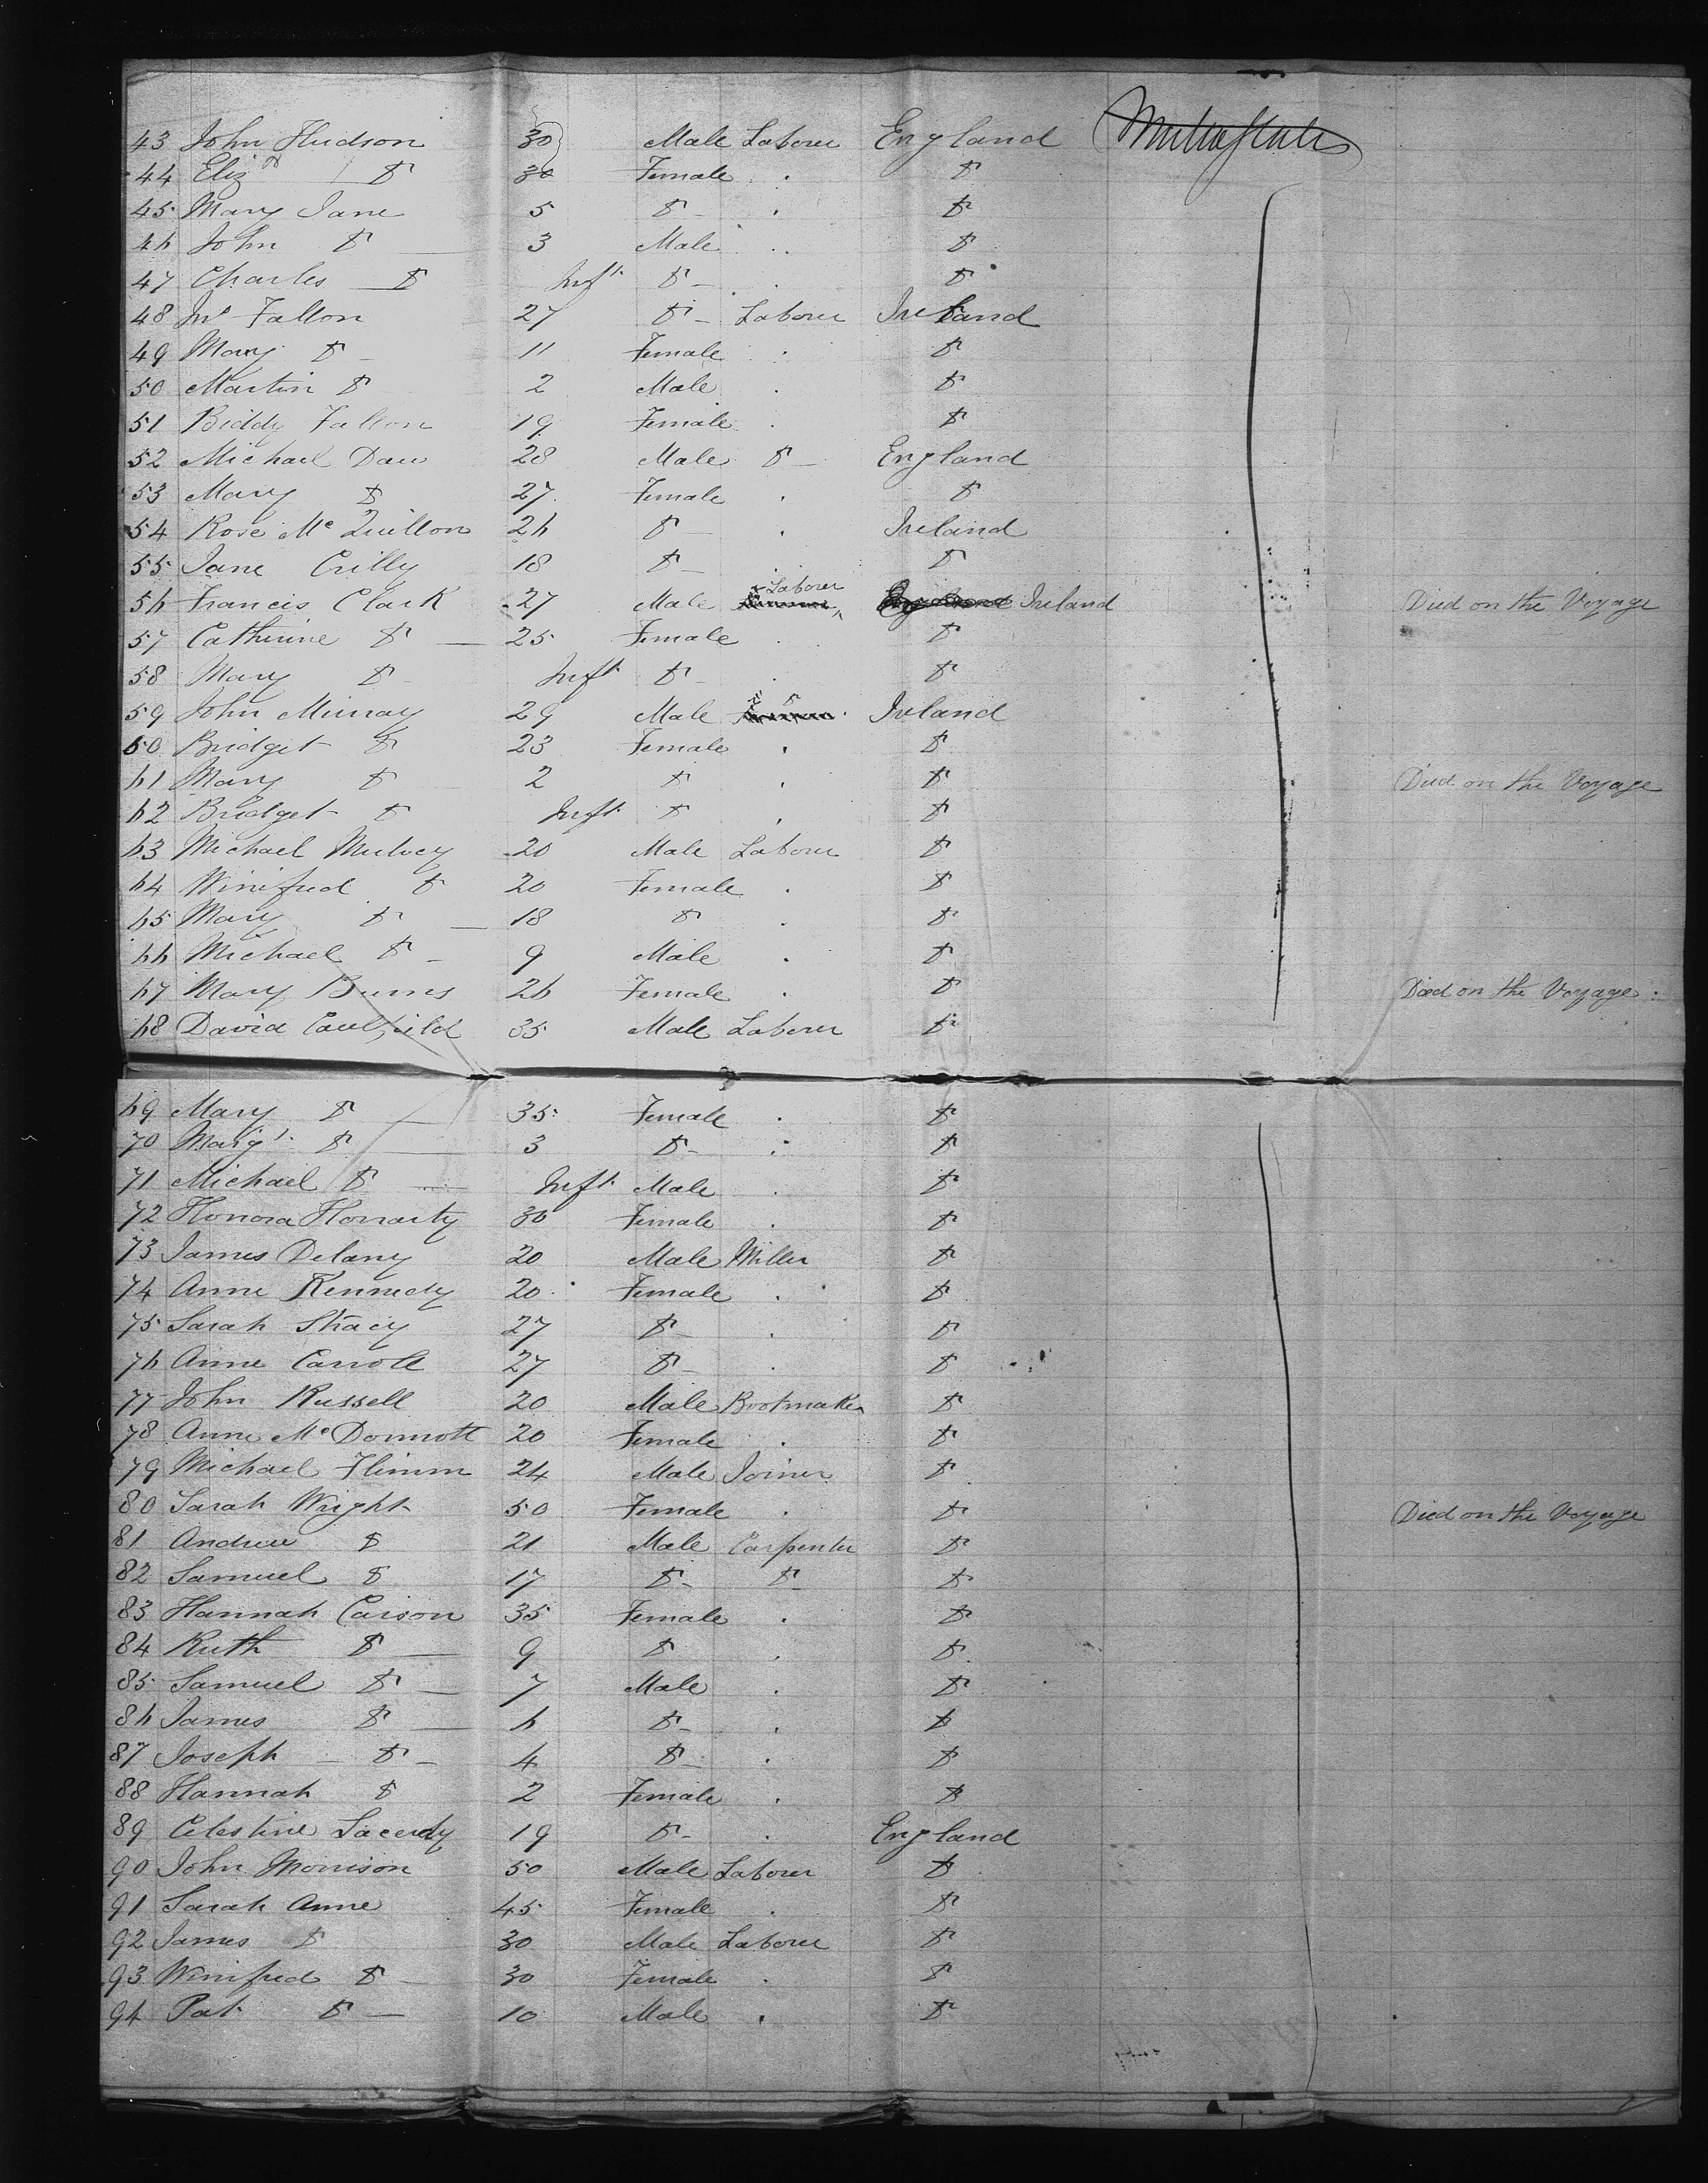 43 John Hudson 30 Male Laborer England United States
44 Eliz.th Do 30 Female Do
45 Mary Jane 5 Do Do
46 John Do 3 Male Do
47 Charles Do Inft Do Do
48 Fallon 27 Do Laborer Ireland
49 Mary Do 11 Female Do
50 Martin Do 2 Male Do
51 Biddy Fallon 19 Female Do
52 Michael Daw 28 Male Do England
53 Mary Do 27 Female Do
54 Rose Mc Quillon 26 Do Ireland
55 Jane Crilly 18 Do Do
56 Francis Clark 27 Male Laborer England Ireland Died on the Voyage
57 Catherine Do 25 Female Do
58 Mary Do Inft Do Do
59 John Murray 29 Male Ireland
60 Bridget Do 23 Female Do
61 Mary Do 2 Do Do Died on the Voyage
62 Bridget Do Inft Do Do
63 Michael Mulvey 20 Male Laborer Do
64 Winifred Do 20 Female Do
65 Mary Do 18 Do Do
66 Michael Do 9 Male Do
67 Mary Burns 26 Female Do Died on the Voyage
68 David Caulfield 35 Male Laborer Do
69 Mary Do 35 Female Do
70 Marg.t Do 3 Do Do
71 Michael Do Inft Male Do
72 Honora Horrarty 30 Female Do
73 James Delany 20 Male Miller Do
74 Anne Kennedy 20 Female Do
75 Sarah Stracy 27 Do Do
76 Anne Carroll 27 Do Do
77 John Russell 20 Male Bootmaker Do
78 Anne Mc Donnott 20 Female Do
79 Michael Flimm 24 Male Joiner Do
80 Sarah Wright 50 Female Do Died on the Voyage
81 Andrew Do 21 Male Carpenter Do
82 Samuel Do 17 Do Do Do
83 Hannah Carson 35 Female Do
84 Ruth Do 9 Do Do
85 Samuel Do 7 Male Do
86 James Do 6 Do Do
87 Joseph Do 4 Do Do
88 Hannah Do 2 Female Do
89 Celestine 19 Do England
90 John Morrison 50 Male Laborer Do
91 Sarah Anne 45 Female Do
92 James Do 30 Male Laborer Do
93 Winifred Do 30 Female Do
94 Pat Do 10 Male Do